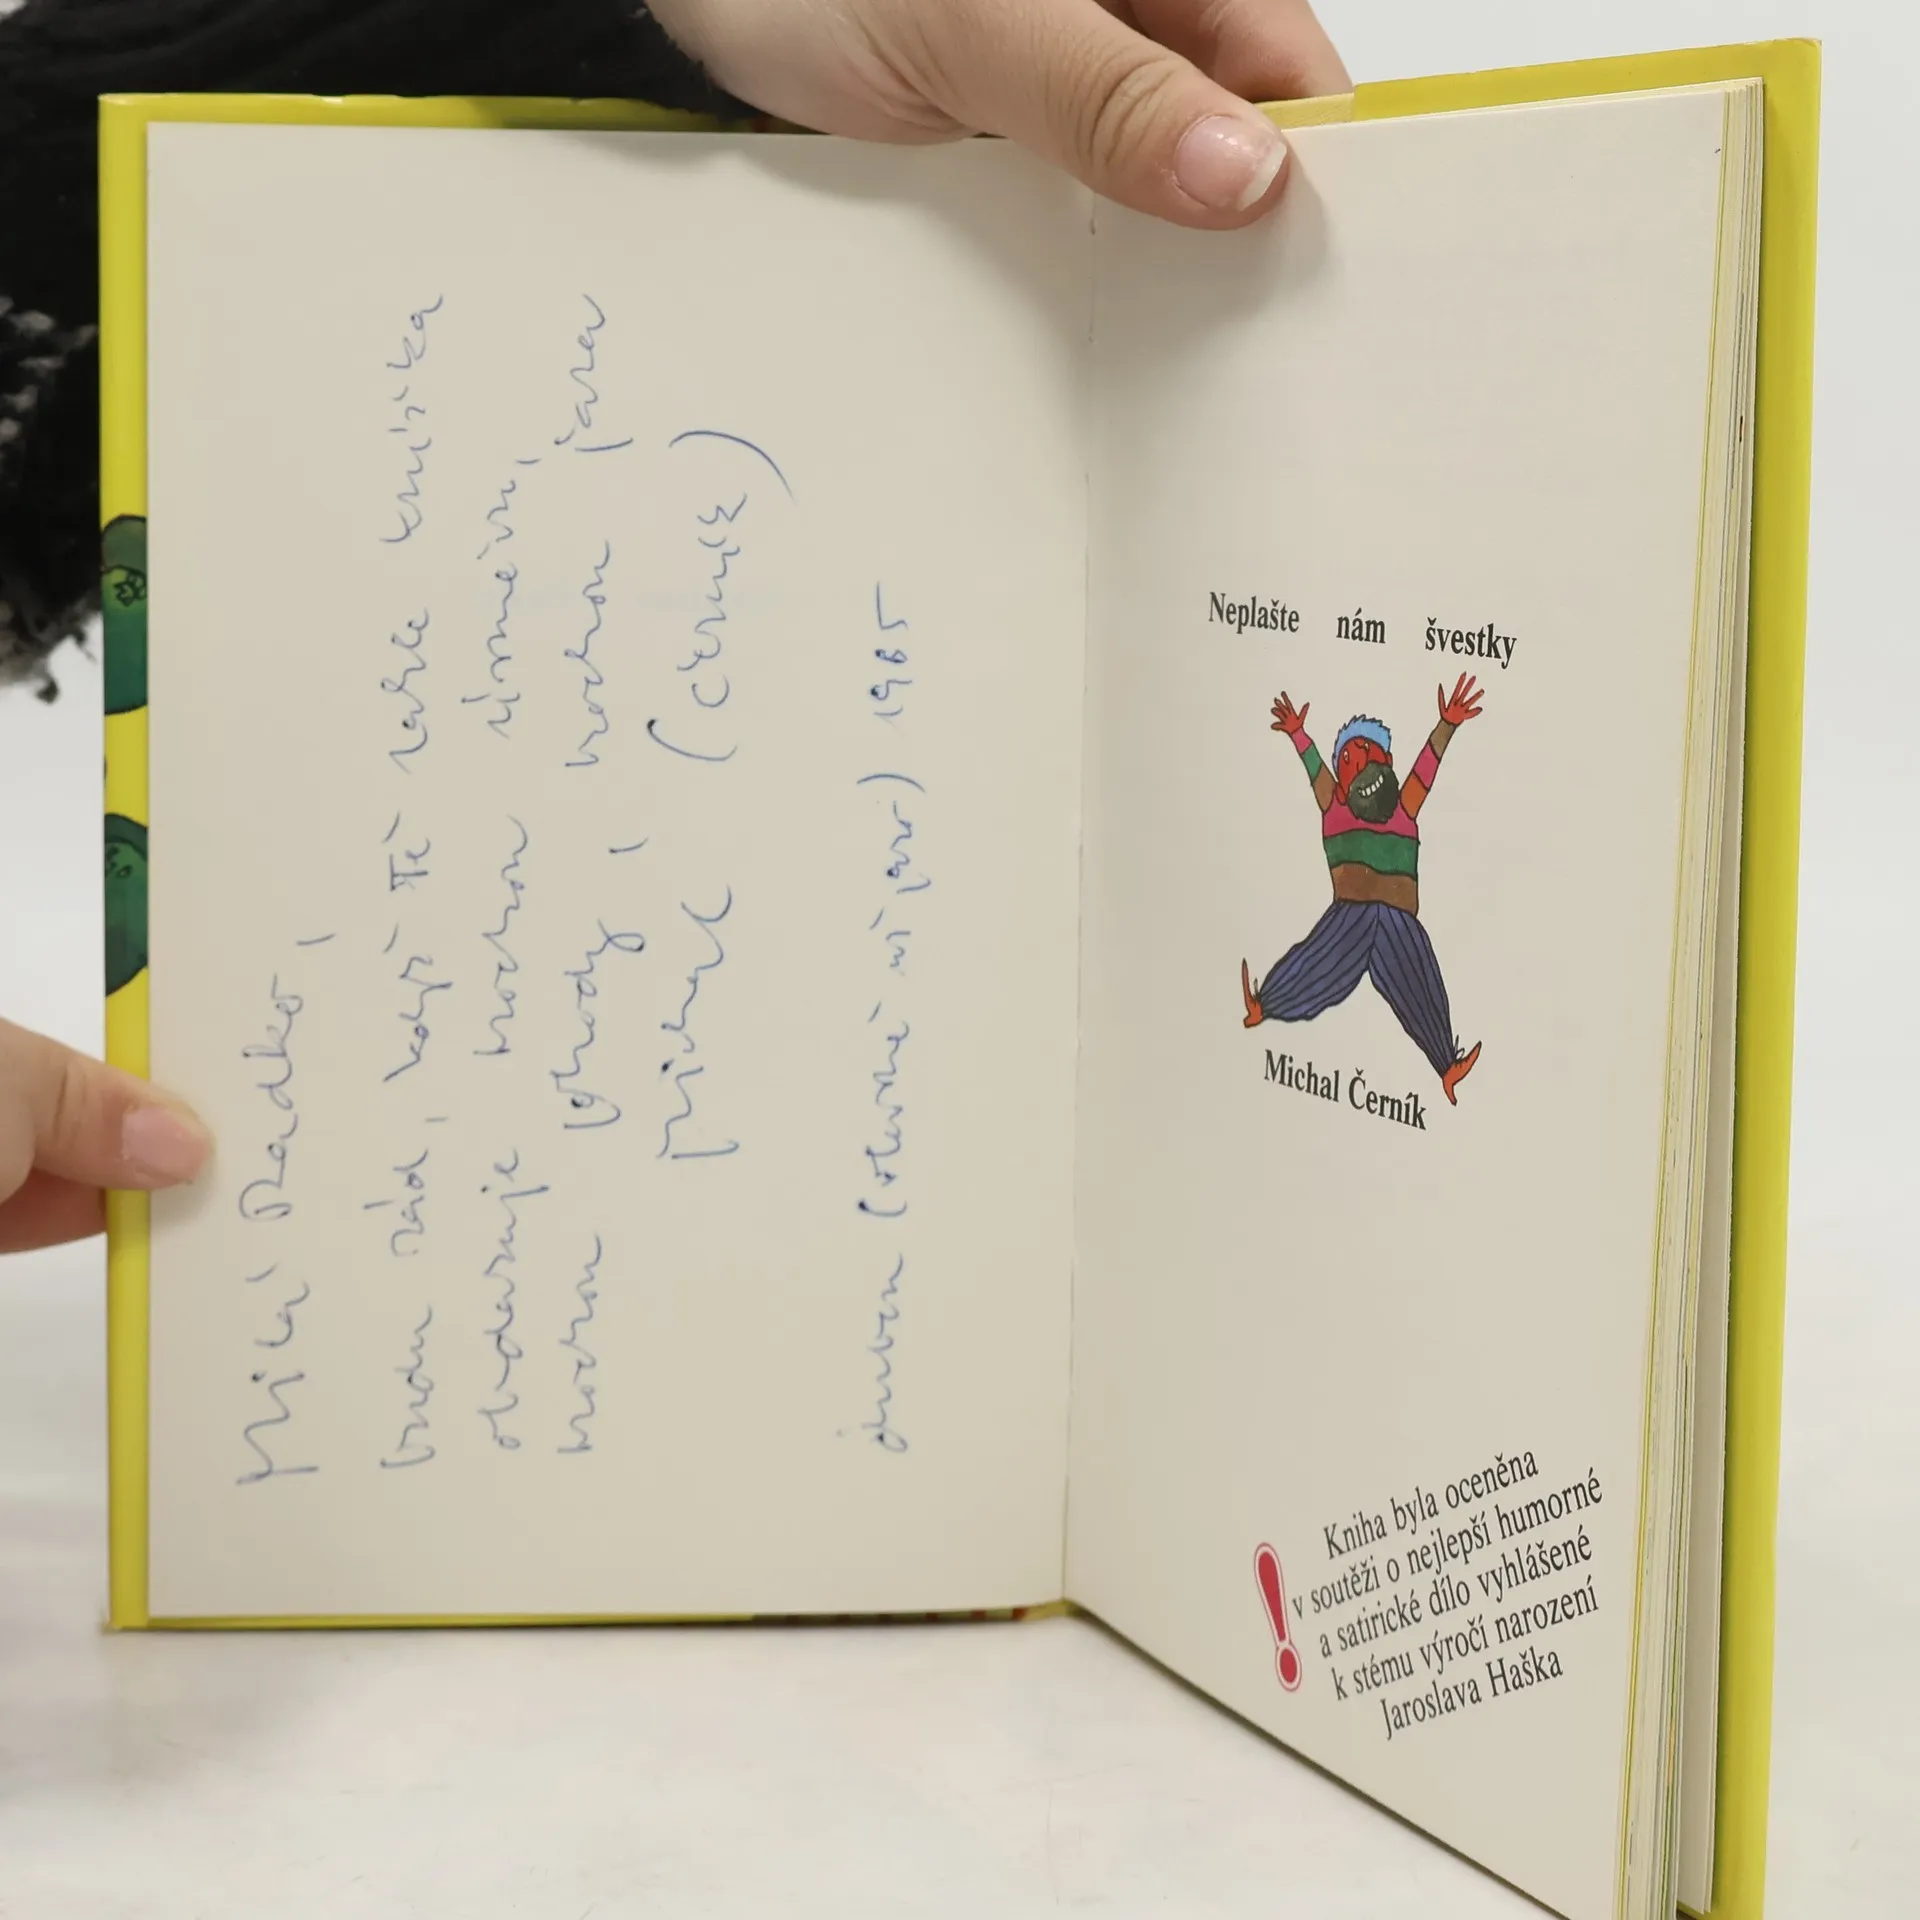 Milá Radko,
budu rád, když Tě tahle knížka
obdaruje trochou
trochou pohody, trochou jara
(Černík)
únorové 1985
Neplašte nám švestky
Michal Černík
! Kniha byla oceněna
v soutěži o nejlepší humorné
a satirické dílo vyhlášené
k stému výročí narození
Jaroslava Haška